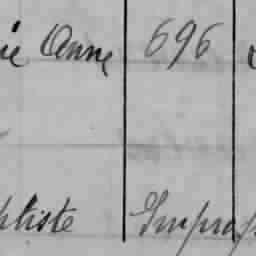 ie Anne 696
ptiste Improp